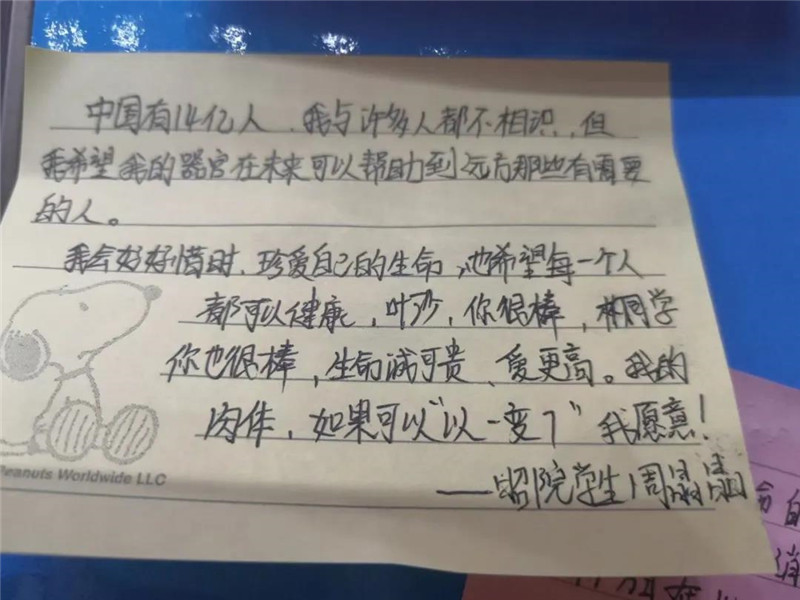 中国有14亿人、我与许多人都不相识,但
我希望我的器官在未来可以帮助到远方那些有需要
的人。
我会好好惜时、珍爱自己的生命,也希望每一个人
都可以健康,叶沙,你很棒,林同学
你也很棒,生命诚可贵、爱更高。我的
肉体,如果可以“以一变7”我愿意!
——昭院学生周
Peanuts Worldwide LLC
命的
在